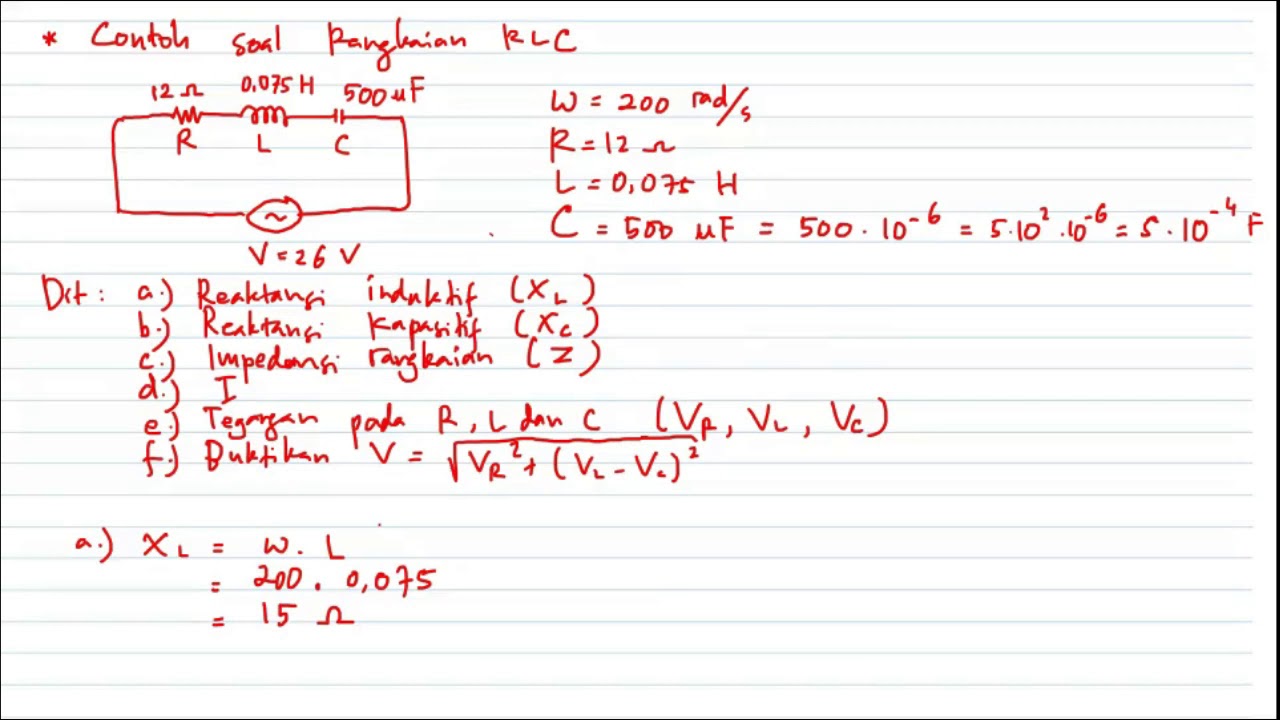 * Contoh soal Rangkaian RLC
12 Ω 0,075 H 500 μF
R L C
V = 26 V
W = 200 rad/s
R = 12 Ω
L = 0,075 H
C = 500 μF = 500 . 10⁻⁶ = 5.10² .10⁻⁶ = 5 . 10⁻⁴ F
Dit : a.) Reaktansi induktif (X_L)
b.) Reaktansi Kapasitif (X_C)
c.) Impedansi rangkaian (Z)
d.) I
e.) Tegangan pada R, L dan C (V_R, V_L, V_C)
f.) Buktikan V = √(V_R² + (V_L - V_C)²)
a.) X_L = W . L
= 200 . 0,075
= 15 Ω